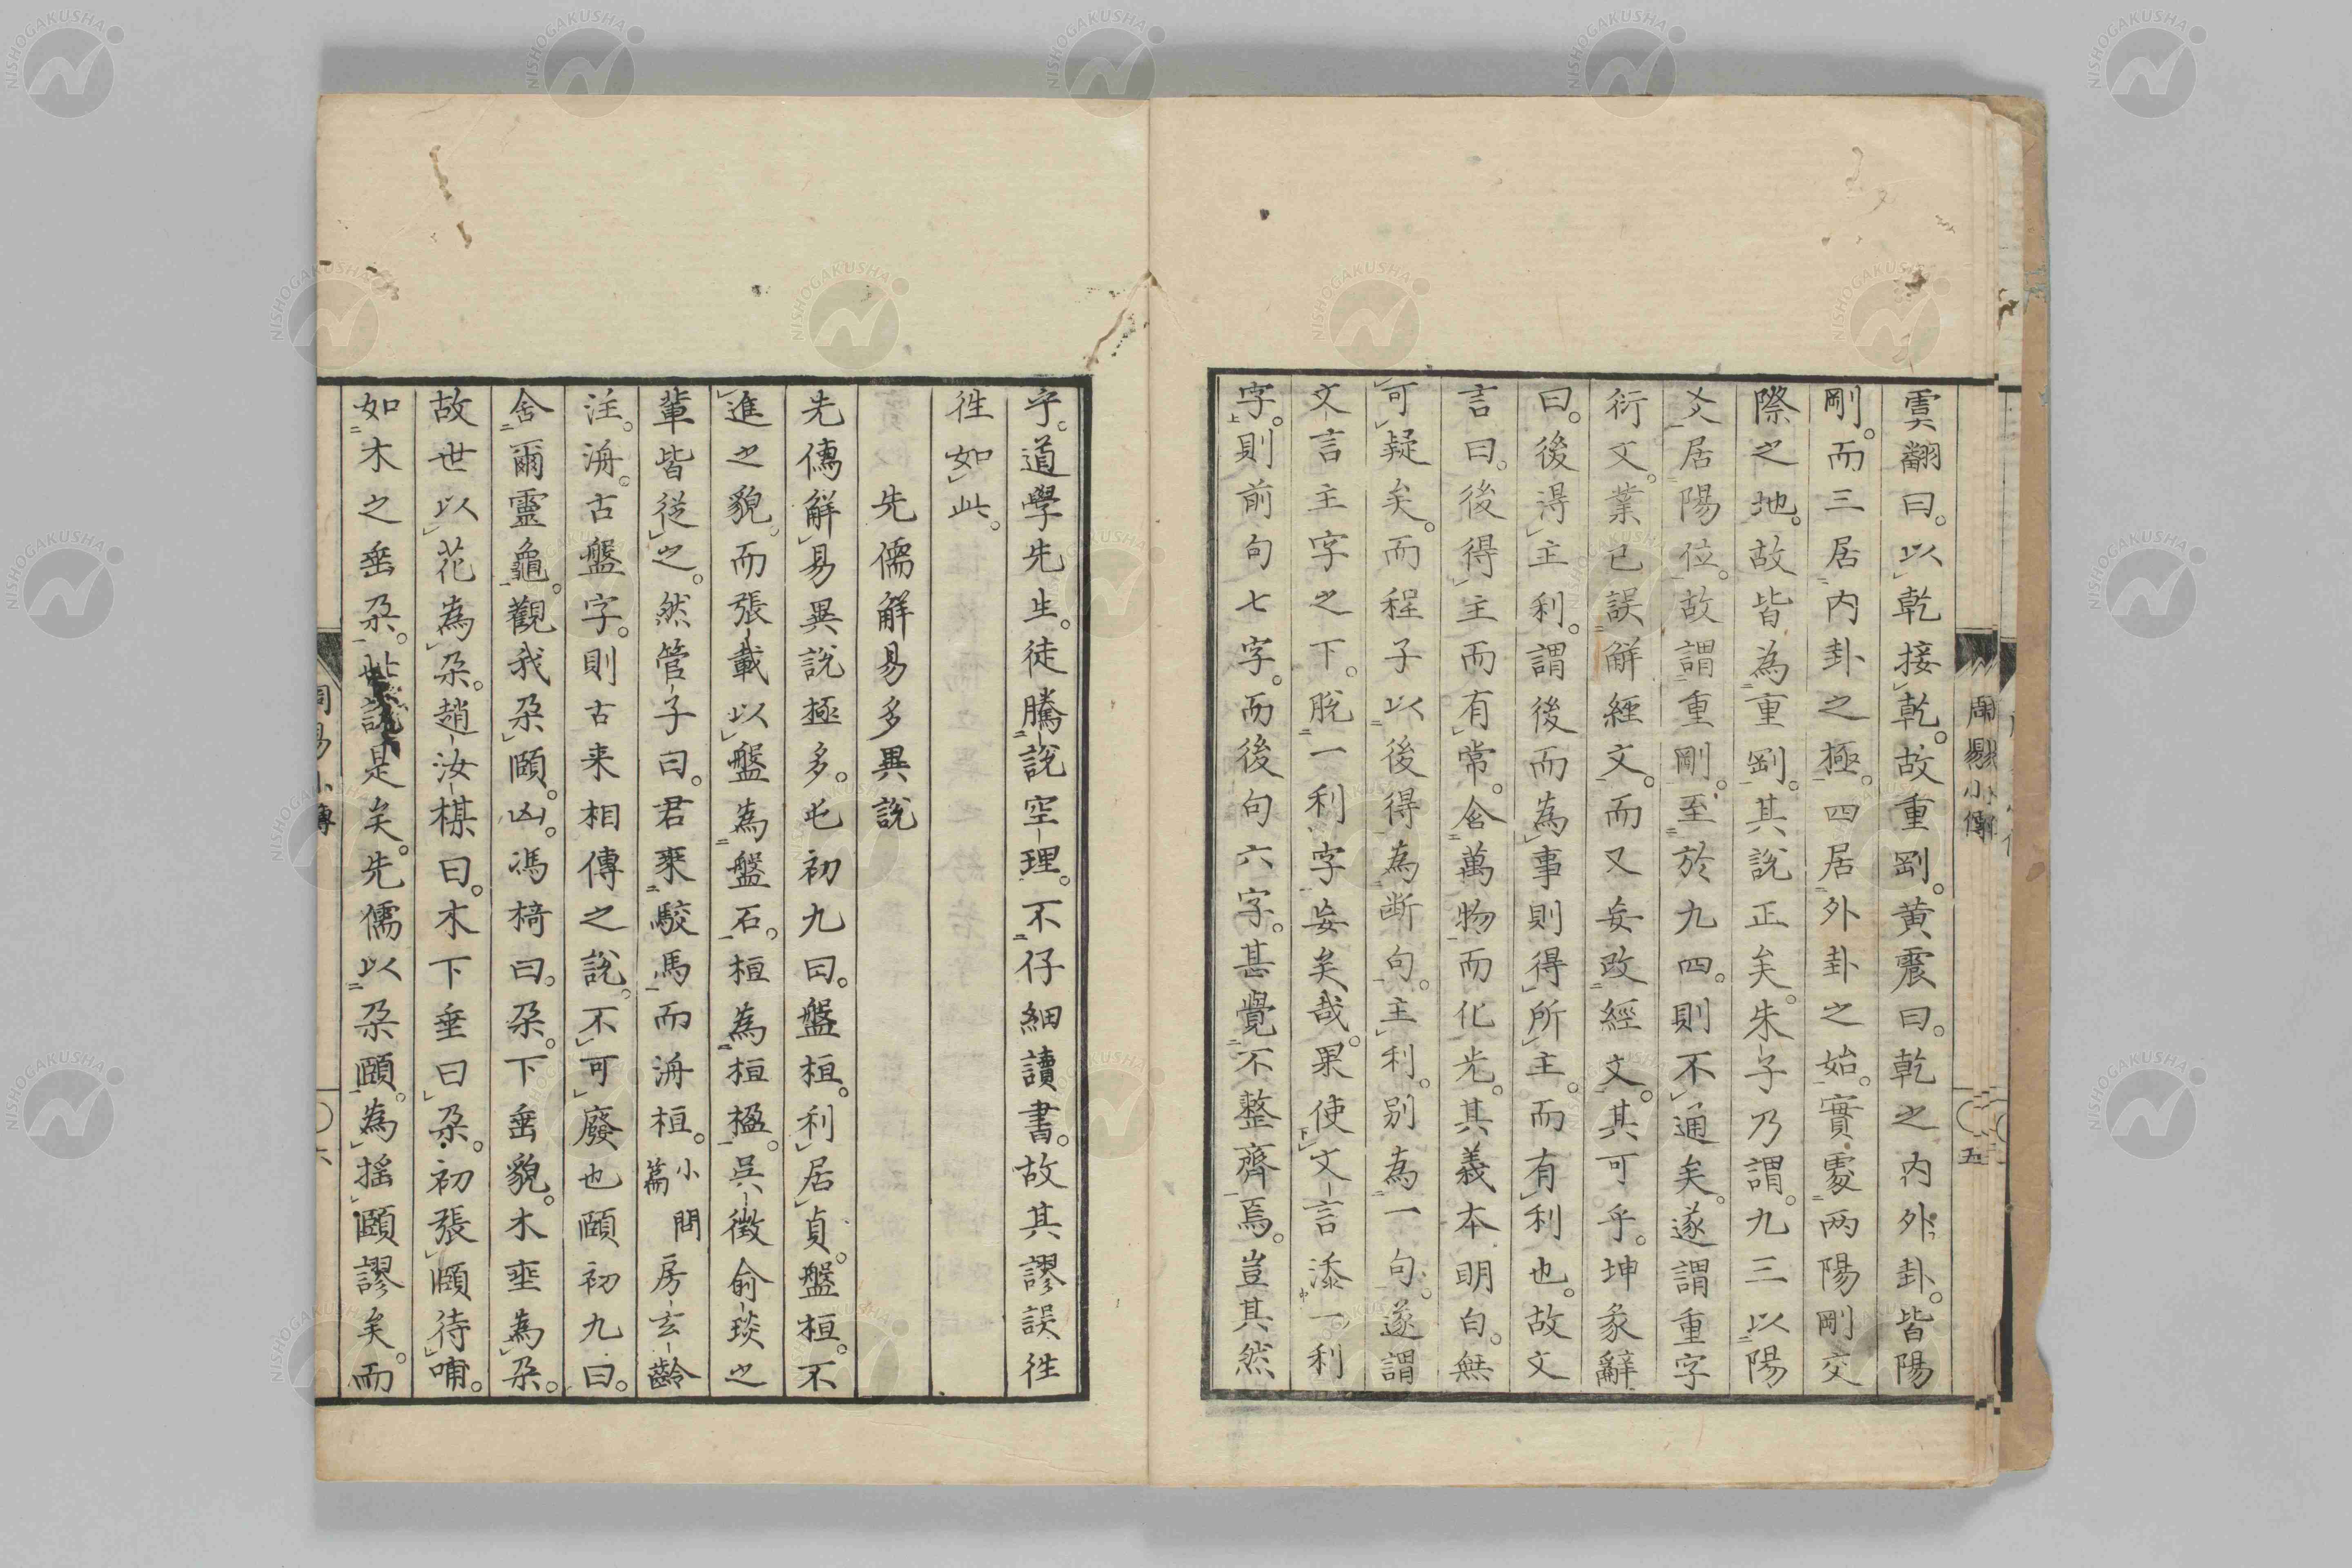 虞翻曰。以乾接乾。故重剛。黄震曰。乾之内外卦。皆陽
剛。而三居内卦之極。四居外卦之始。實處兩陽剛交
際之地。故皆為重剛。其說正矣。朱子乃謂。九三以陽
爻居陽位。故謂重剛。至於九四。則不通矣。遂謂重字
衍文。業已誤解經文。而又妄改經文。其可乎。坤彖辭
曰。後得主利。謂後而為事則得所主。而有利也。故文
言曰。後得主而有常。含萬物而化光。其義本明白。無
可疑矣。而程子以後得為斷句。主利。別為一句。遂謂
文言主字之下。脫一利字妄矣哉。果使文言添一利
字。則前句七字。而後句六字。甚覺不整齊焉。豈其然
周易小傳
五
乎。道學先生。徒騰說空理。不仔細讀書。故其謬誤往
往如此。
先儒解易多異說
先儒解易異說極多。屯初九曰。盤桓。利居貞。盤桓。不
進之貌。而張載以盤為盤石。桓為桓楹。吳徴俞琰之
輩皆從之。然管子曰。君乘駮馬而洀桓。小問篇房玄齡
注。洀。古盤字。則古来相傳之說。不可廢也頤初九曰。
舍爾靈龜。觀我朶頤。凶。馮椅曰。朶。下垂貌。木垂為朶。
故世以花為朶。趙汝楳曰。木下垂曰朶。初張頤待哺。
如木之垂朶。此說是矣。先儒以朶頤。為搖頤謬矣。而
周易小傳
六
NISHOGAKUSHA